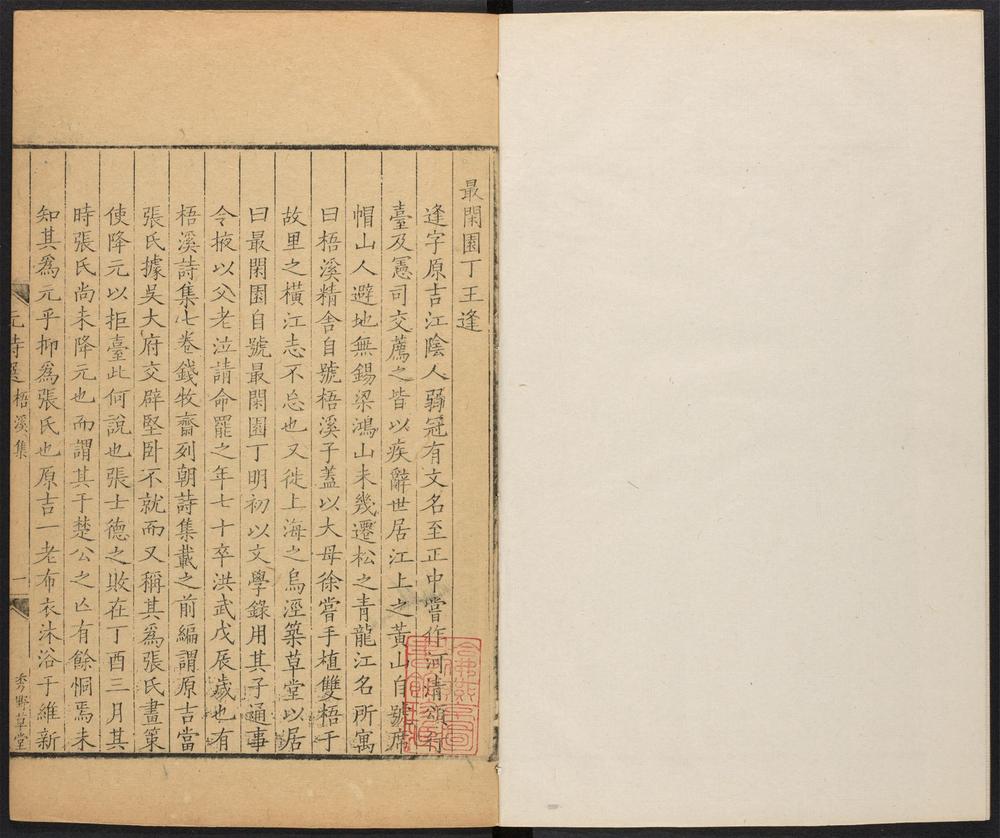 最閑園丁王逢
逢字原吉江陰人弱冠有文名至正中嘗作河清頌行
臺及憲司交薦之皆以疾辭世居江上之黃山自號席
帽山人避地無錫梁鴻山未幾遷松之青龍江名所寓
曰梧溪精舍自號梧溪子蓋以大母徐嘗手植雙梧于
故里之橫江志不忘也又徙上海之烏涇築草堂以居
曰最閑園自號最閑園丁明初以文學錄用其子通事
令掖以父老泣請命罷之年七十卒洪武戊辰歲也有
梧溪詩集七卷錢牧齋列朝詩集載之前編謂原吉當
張氏據吳大府交辟堅臥不就而又稱其為張氏畫策
使降元以拒臺此何說也張士德之敗在丁酉三月其
時張氏尚未降元也而謂其于楚公之亾有餘恫焉未
知其為元乎抑為張氏也原吉一老布衣沐浴于維新
元詩選 梧溪集
一
秀野草堂